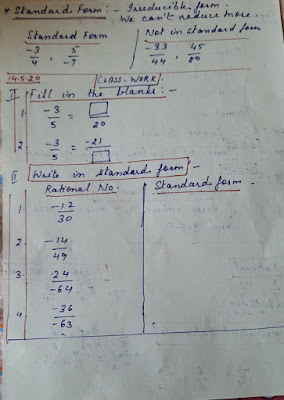 * Standard Form :- Irreducible form.
We can't reduce more...
Standard Form | Not in standard form
-3/4 , 5/-7 | -33/44 , 45/80
14-5-20 CLASS-WORK
II Fill in the blanks :-
1. -3/5 = □/20
2. -3/5 = -21/□
II Write in standard form :-
Rational No. | Standard form
1. -12/30
2. -14/49
3. 24/-64
4. -36/-63